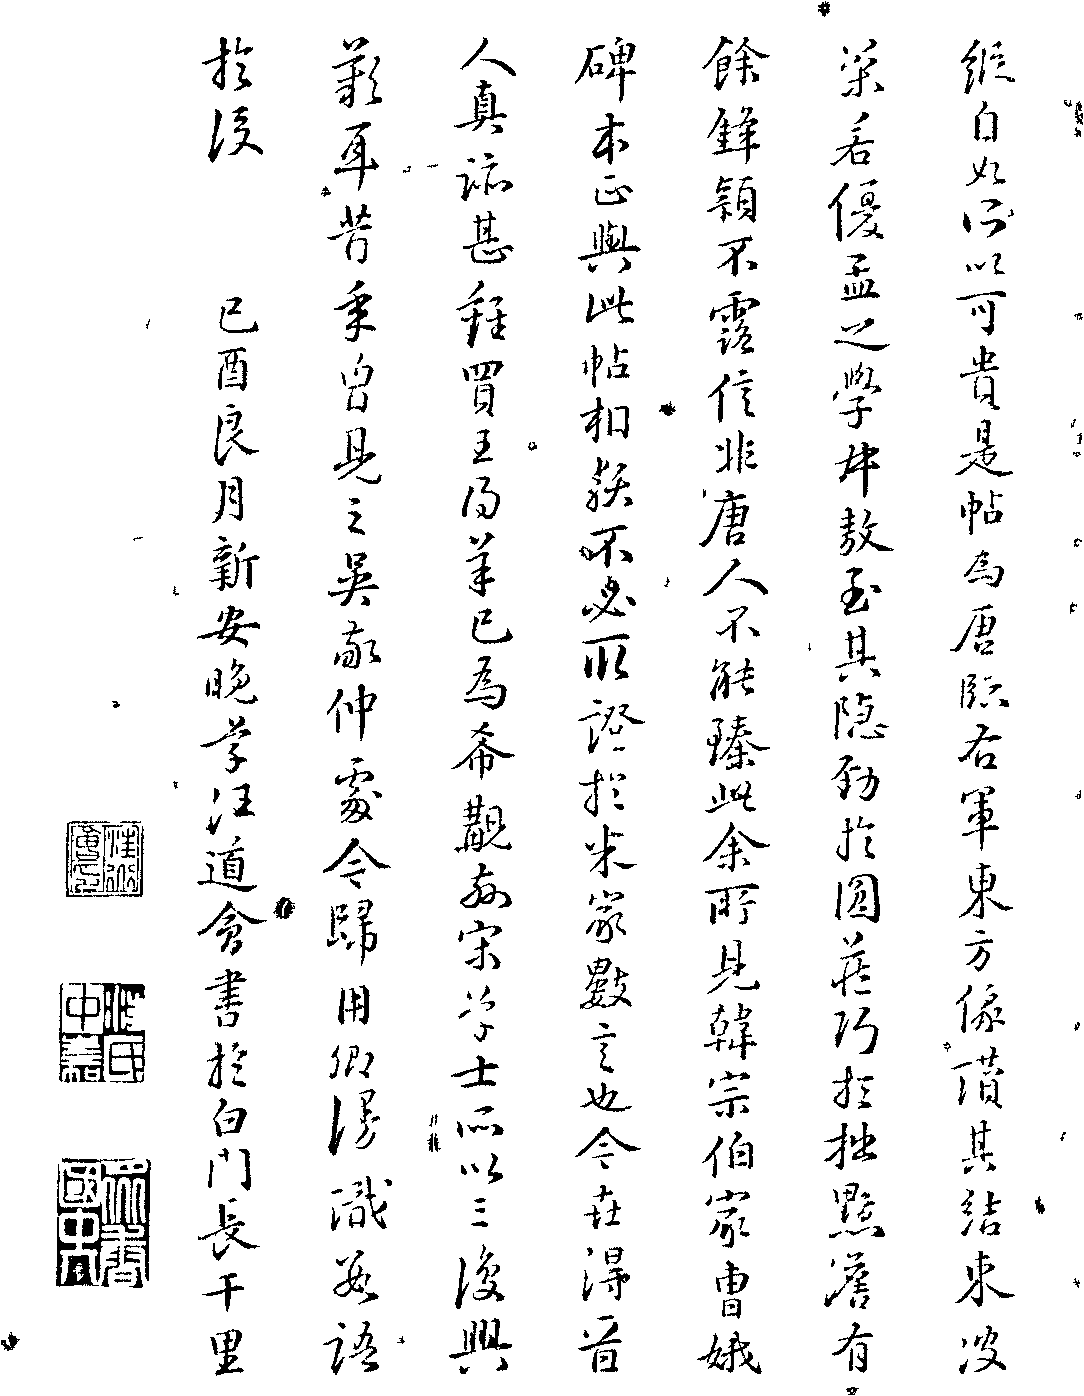 縱自如所以可貴是帖為唐臨右軍東方像讚其結束波
策若優孟之學叔敖至其隱勁於圓藏巧於拙點畫有
餘鋒穎不露信非唐人不能臻此余所見韓宗伯家曹娥
碑本正與此帖相類不必取證於米家數言也今在得晉
人真跡甚難買王得羊已為希覯故宋學士所以三復興
歎耳昔年曾見之吳敬仲處今歸用卿漫識數語
於後 己酉良月新安晚學汪道會書於白門長干里